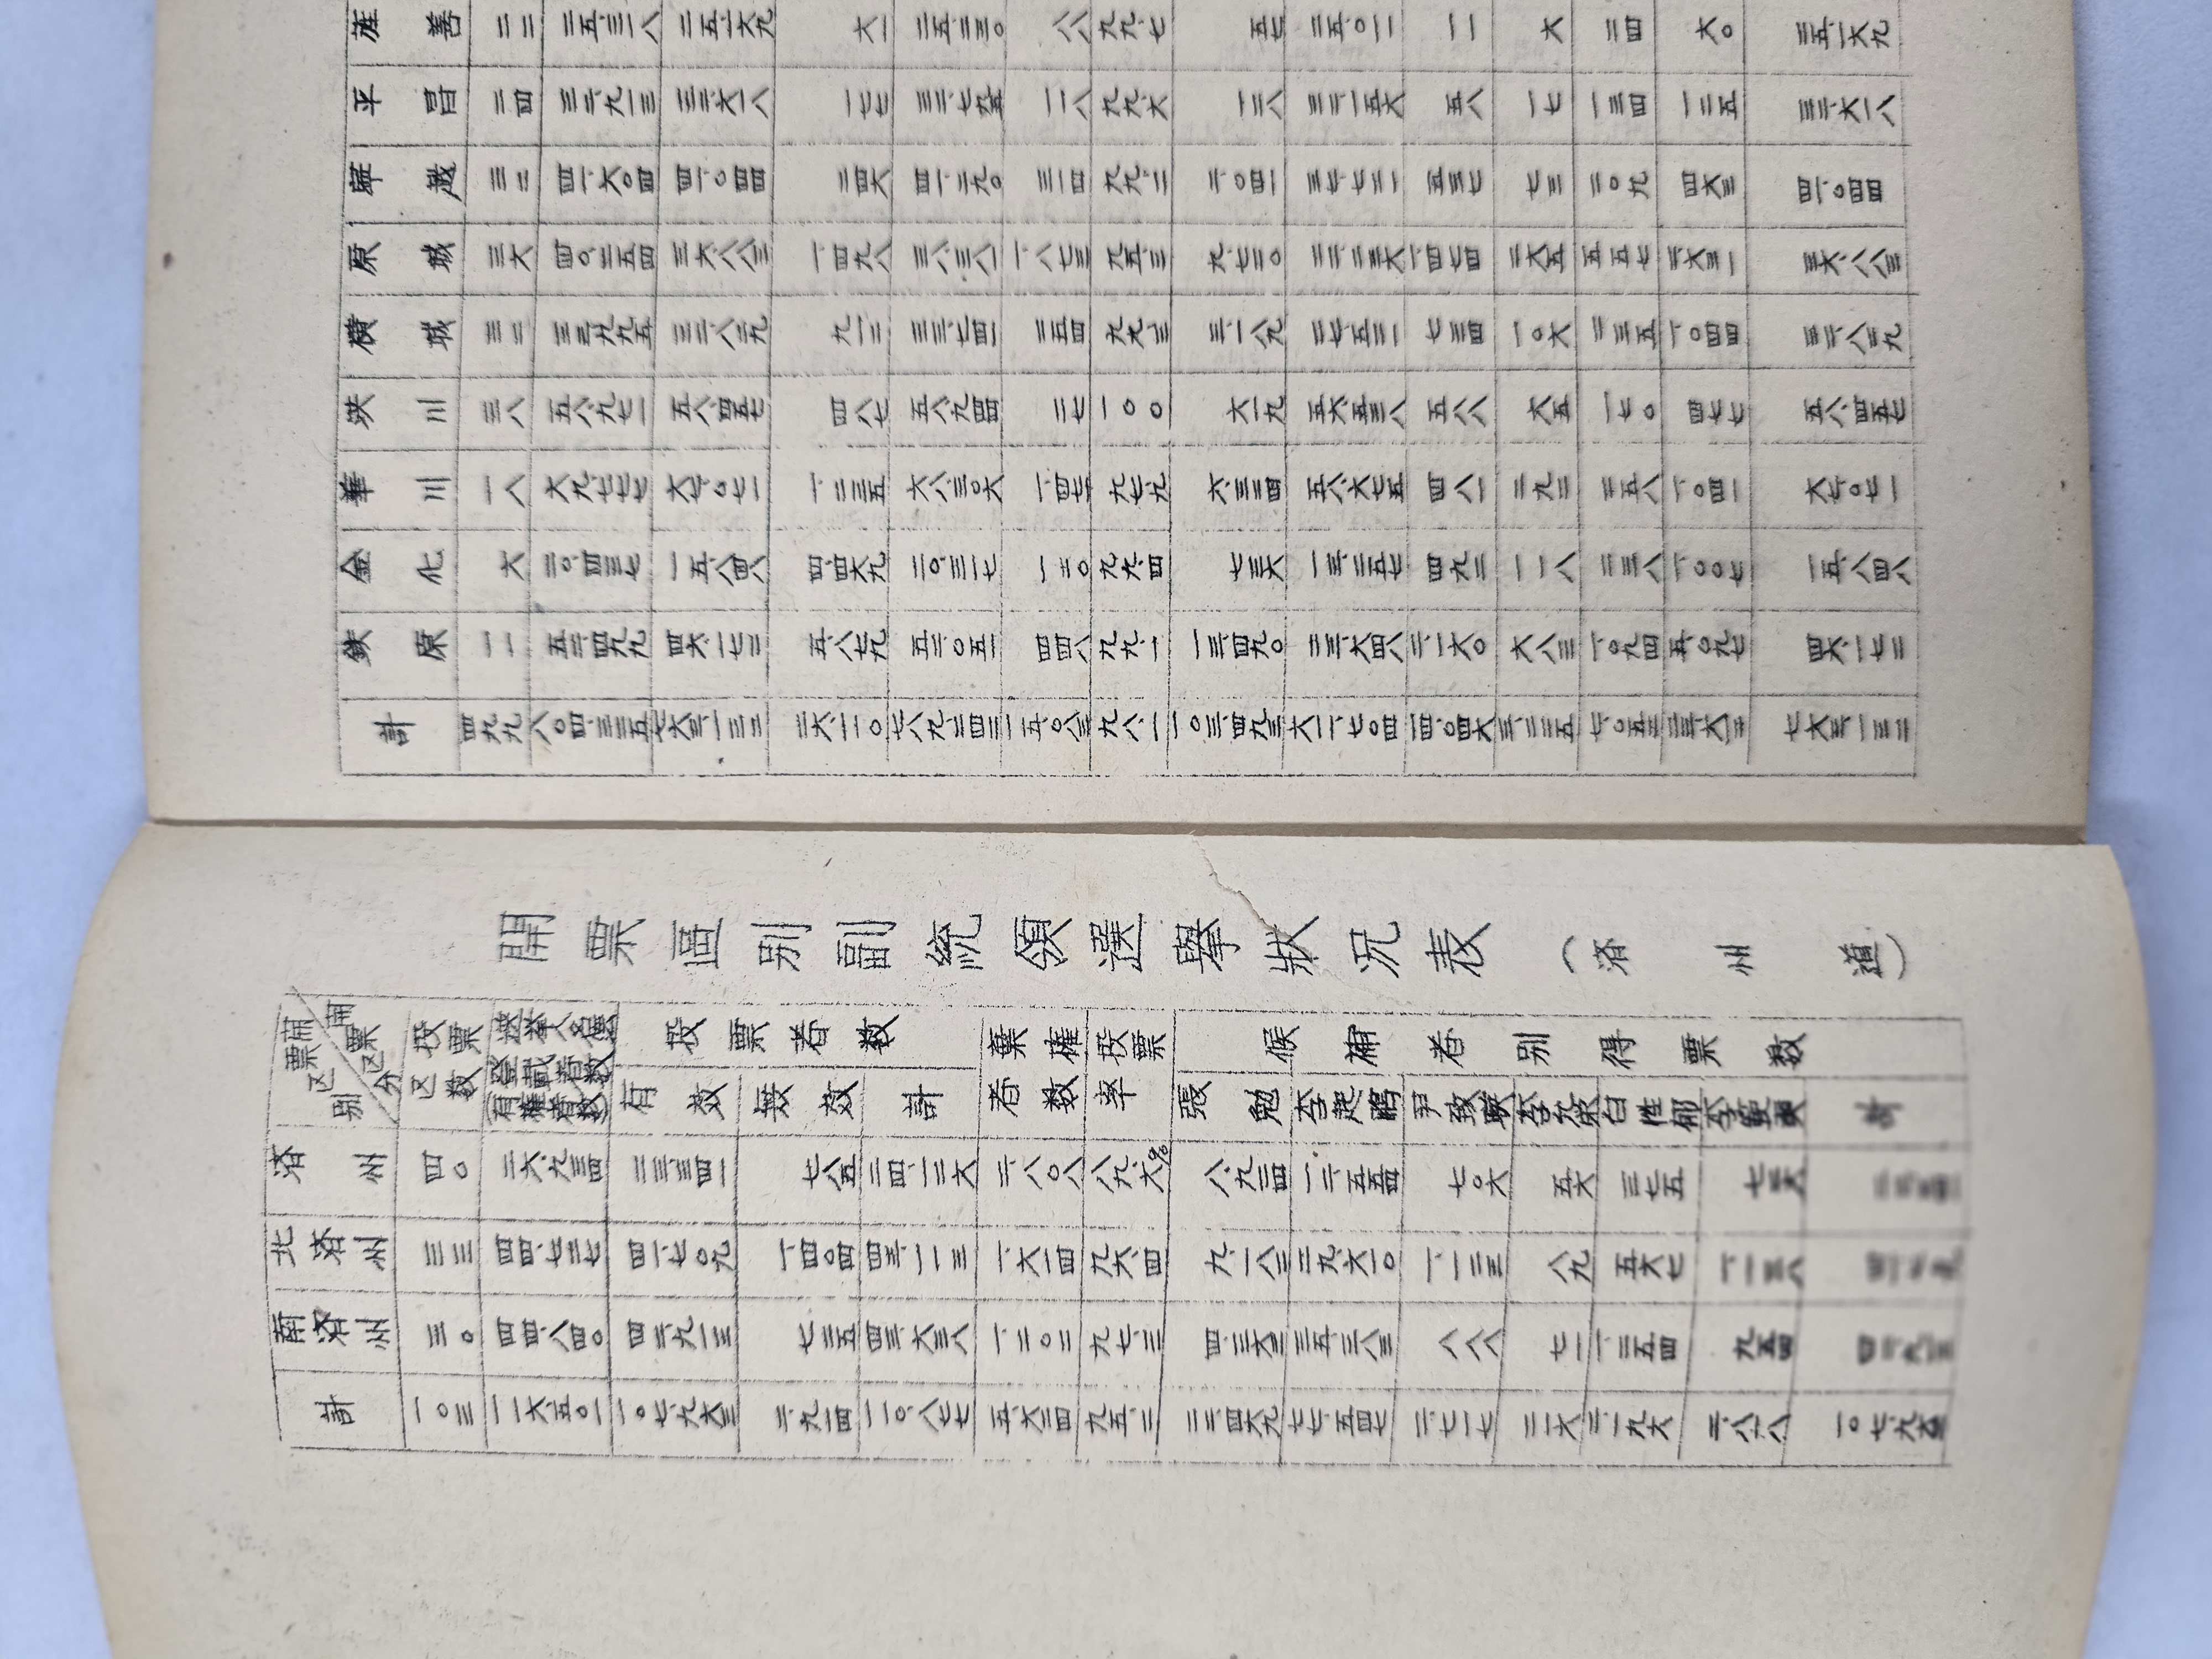 旌善 二二 二五、三一八 二五、一六九 六一 二五、二三〇 八八 九九、七 五七 二五、〇一一 一一 六 二四 六〇 二五、一六九
平昌 二四 三二、九一三 三二、六一八 一七七 三二、七九五 一一八 九九、六 一二八 三二、一五六 五八 一七 一三四 一二五 三二、六一八
寧越 三二 四一、六〇四 四一、〇四四 二四六 四一、二九〇 三一四 九九、二 二、〇四一 三七、七二一 五三七 七三 二〇九 四六三 四一、〇四四
原城 三六 四〇、二五四 三六、八八三 一、四九八 三八、三八一 一、八七三 九五、三 九、七二〇 二二、二三六 一、四七四 二六五 五五七 二、六三一 三六、八八三
横城 三二 三三、九九五 三二、八二九 九一二 三三、七四一 二五四 九九、三 三、一八九 二七、五二一 七三四 一〇六 二三五 一、〇四四 三二、八二九
洪川 三八 五八、九七一 五八、四五七 四八七 五八、九四四 二七 一〇〇 六一九 五六、五三八 五八八 六五 一七〇 四七七 五八、四五七
華川 一八 六九、七七七 六七、〇七一 一、二三五 六八、三〇六 一、四七一 九七、九 六、三二四 五八、六七五 四八一 二九二 二五八 一、〇四一 六七、〇七一
金化 六 二〇、四三七 一五、八四八 四、四六九 二〇、三一七 一二〇 九九、四 七三六 一三、二五七 四九二 一一八 二三八 一、〇〇七 一五、八四八
鉄原 一一 五二、四九九 四六、一七二 五、八七九 五二、〇五一 四四八 九九、一 一三、四九〇 二三、六四八 二、一六〇 六八三 一、〇九四 五、〇九七 四六、一七二
計 四九九 八〇四、三三五 七六三、一三二 二六、一一〇 七八九、二四二 一五、〇九三 九八、一 一〇三、四九三 六一一、七〇四 一四、〇四六 三、二三五 七、〇五二 二三、六〇二 七六三、一三二
開票区別副統領選擧狀況表（済州道）
開票区分 開票区別 投票区数 選挙人名簿登載者数(有権者数) 投票者数 棄権者数 投票率 候補者別得票数
有效 無效 計 張勉 李起鵬 尹致暎 李允栄 白性郁 李範奭 計
済州 四〇 二六、九三四 二三、三四一 七八五 二四、一二六 二、八〇八 八九、六% 八、九二四 一二、五五四 七〇六 五六 三七五 七二六 二三、三四一
北済州 三三 四四、七二七 四一、七〇九 一、四〇四 四三、一一三 一、六一四 九六、四 九、一八二 二九、六一〇 一、一二三 八九 五六七 一、一三八 四一、七〇九
南済州 三〇 四四、八四〇 四二、九一三 七二五 四三、六三八 一、二〇二 九七、三 四、三六三 三五、三八三 八八八 七一 一、二五四 九五四 四二、九一三
計 一〇三 一一六、五〇一 一〇七、九六三 二、九一四 一一〇、八七七 五、六二四 九五、二 二二、四六九 七七、五四七 二、七一七 二一六 二、一九六 二、八一八 一〇七、九六三